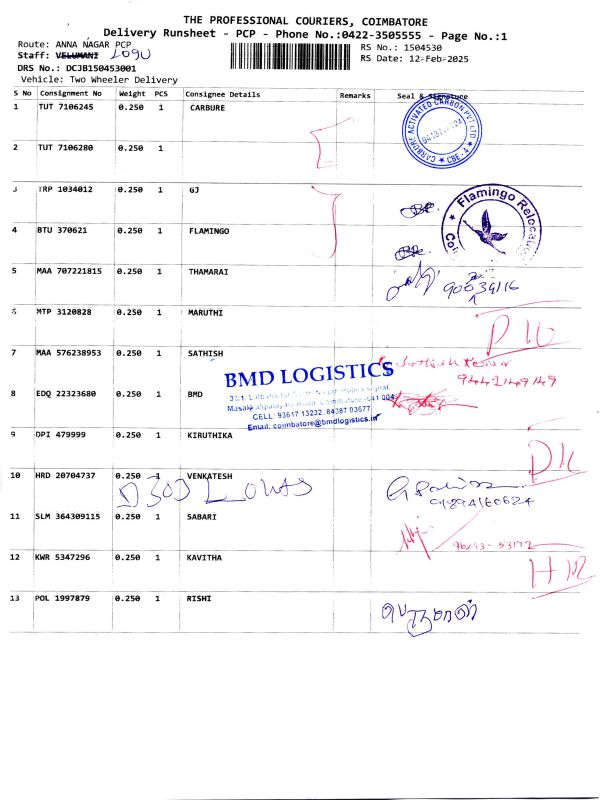 THE PROFESSIONAL COURIERS, COIMBATORE
Delivery Runsheet - PCP - Phone No.:0422-3505555 - Page No.:1
Route: ANNA NAGAR PCP
RS No.: 1504530
Staff: VELUMANI LOGU
RS Date: 12-Feb-2025
DRS No.: DCJB150453001
Vehicle: Two Wheeler Delivery
S No Consignment No Weight PCS Consignee Details Remarks Seal & Signature
1 TUT 7106245 0.250 1 CARBURE
CARBURE ACTIVATED CARBON PVT LTD ★ CBE-4 ★
2 TUT 7106280 0.250 1
3 TRP 1034012 0.250 1 GJ
★ Flamingo Relocat
4 BTU 370621 0.250 1 FLAMINGO
5 MAA 707221815 0.250 1 THAMARAI
6 MTP 3120828 0.250 1 MARUTHI
7 MAA 576238953 0.250 1 SATHISH
9442149149
BMD LOGISTICS
8 EDQ 22323680 0.250 1 BMD
CELL: 93617 13232, 84387 03677
Email: coimbatore@bmdlogistics.in
9 OPI 479999 0.250 1 KIRUTHIKA
10 HRD 20704737 0.250 1 VENKATESH
9894160624
11 SLM 364309115 0.250 1 SABARI
12 KWR 5347296 0.250 1 KAVITHA
13 POL 1997879 0.250 1 RISHI